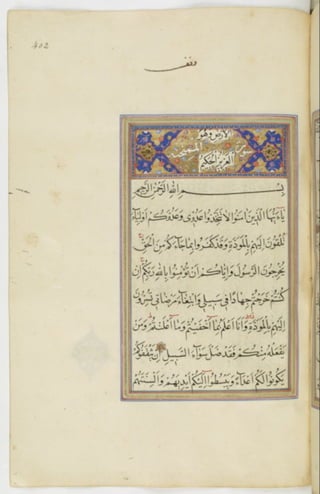 402
وقف
الْأَرْضِ وَهُوَ
سورة الممتحنة
الْعَزِيزُ الْحَكِيمُ
بِسْمِ اللهِ الرَّحْمٰنِ الرَّحِيمِ
يَاءَيُّهَا الَّذِينَ اٰمَنُوا لَا تَتَّخِذُوا عَدُوِّى وَعَدُوَّكُمْ اَوْلِيَاءَ
تُلْقُونَ اِلَيْهِمْ بِالْمَوَدَّةِ وَقَدْ كَفَرُوا بِمَا جَاءَكُمْ مِنَ الْحَقِّ
يُخْرِجُونَ الرَّسُولَ وَاِيَّاكُمْ اَنْ تُؤْمِنُوا بِاللهِ رَبِّكُمْ اِنْ
كُنْتُمْ خَرَجْتُمْ جِهَادًا فِى سَبِيلِى وَابْتِغَاءَ مَرْضَاتِى تُسِرُّونَ
اِلَيْهِمْ بِالْمَوَدَّةِ وَاَنَا اَعْلَمُ بِمَا اَخْفَيْتُمْ وَمَا اَعْلَنْتُمْ وَمَنْ
يَفْعَلْهُ مِنْكُمْ فَقَدْ ضَلَّ سَوَاءَ السَّبِيلِ اِنْ يَثْقَفُوكُمْ
يَكُونُوا لَكُمْ اَعْدَاءً وَيَبْسُطُوا اِلَيْكُمْ اَيْدِيَهُمْ وَاَلْسِنَتَهُمْ